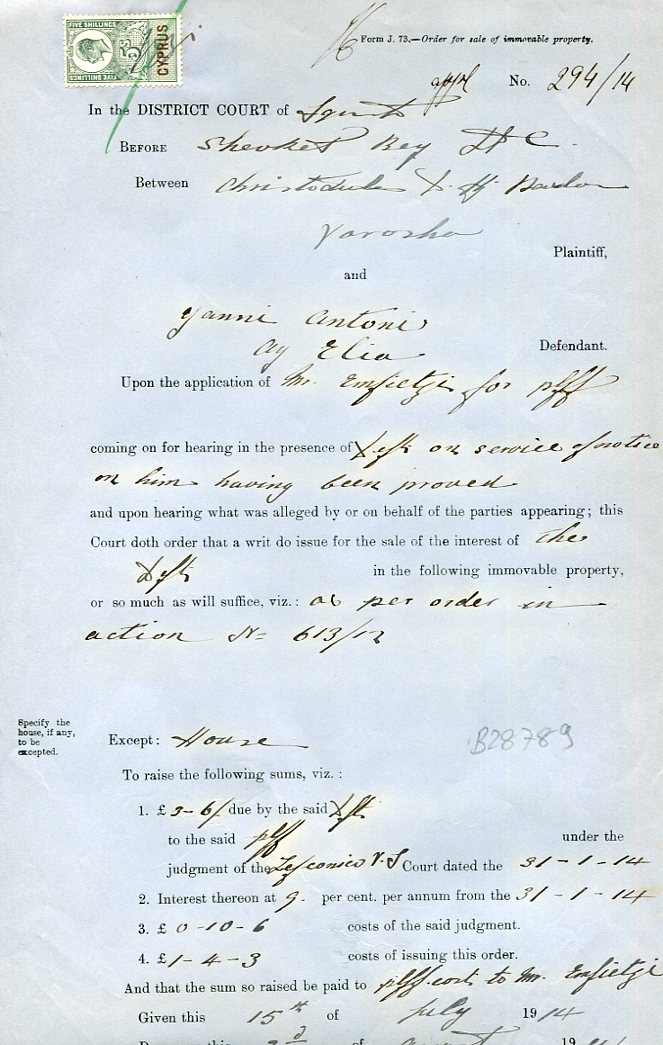 FIVE SHILLINGS
5S
CYPRUS
FIVE SHILLINGS
Form J. 73.—Order for sale of immovable property.
appl No. 294/14
In the DISTRICT COURT of
BEFORE Shevket Bey D C
Between Christodulo
Varosha
Plaintiff,
and
Yanni Antoni
Ay Elia Defendant.
Upon the application of Mr. Emfietzi for plff
coming on for hearing in the presence of Deft on service of notice
on him having been proved
and upon hearing what was alleged by or on behalf of the parties appearing; this
Court doth order that a writ do issue for the sale of the interest of the
Deft in the following immovable property,
or so much as will suffice, viz.: as per order in
action No 613/12
Specify the
house, if any,
to be
excepted.
Except: House
B28789
To raise the following sums, viz.:
1. £ 3-6/ due by the said Deft
to the said plff under the
judgment of the Lefconico V.J Court dated the 31-1-14
2. Interest thereon at 9. per cent. per annum from the 31-1-14
3. £ 0-10-6 costs of the said judgment.
4. £ 1-4-3 costs of issuing this order.
And that the sum so raised be paid to plff costs to Mr. Emfietzi
Given this 15th of July 1914